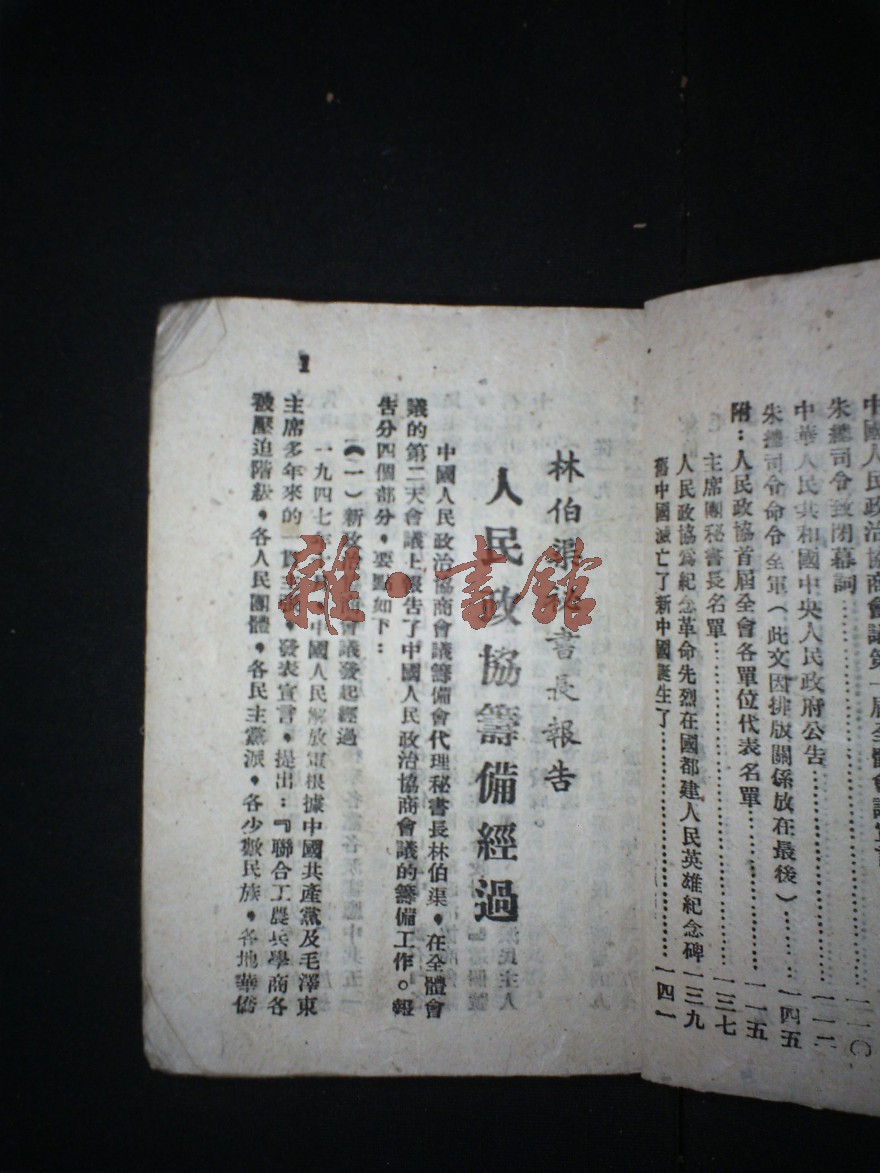 中國人民政治協商會議第一屆全體會議宣言
朱總司令致閉幕詞……一一〇
中華人民共和國中央人民政府公告……一一二
朱總司令命令全軍（此文因排版關係放在最後）……一四五
附：人民政協首屆全會各單位代表名單……一一五
主席團秘書長名單……一三七
人民政協爲紀念革命先烈在國都建人民英雄紀念碑一三九
舊中國滅亡了新中國誕生了……一四一
林伯渠秘書長報告
人民政協籌備經過
中國人民政治協商會議籌備會代理秘書長林伯渠，在全體會
議的第二天會議上報告了中國人民政治協商會議的籌備工作。報
告分四個部分，要點如下：
（一）新政治協商會議發起經過
一九四七年 中國人民解放軍根據中國共產黨及毛澤東
主席多年來的一貫主 發表宣言，提出：『聯合工農兵學商各
被壓迫階級，各人民團體，各民主黨派，各少數民族，各地華僑
1
雜·書館